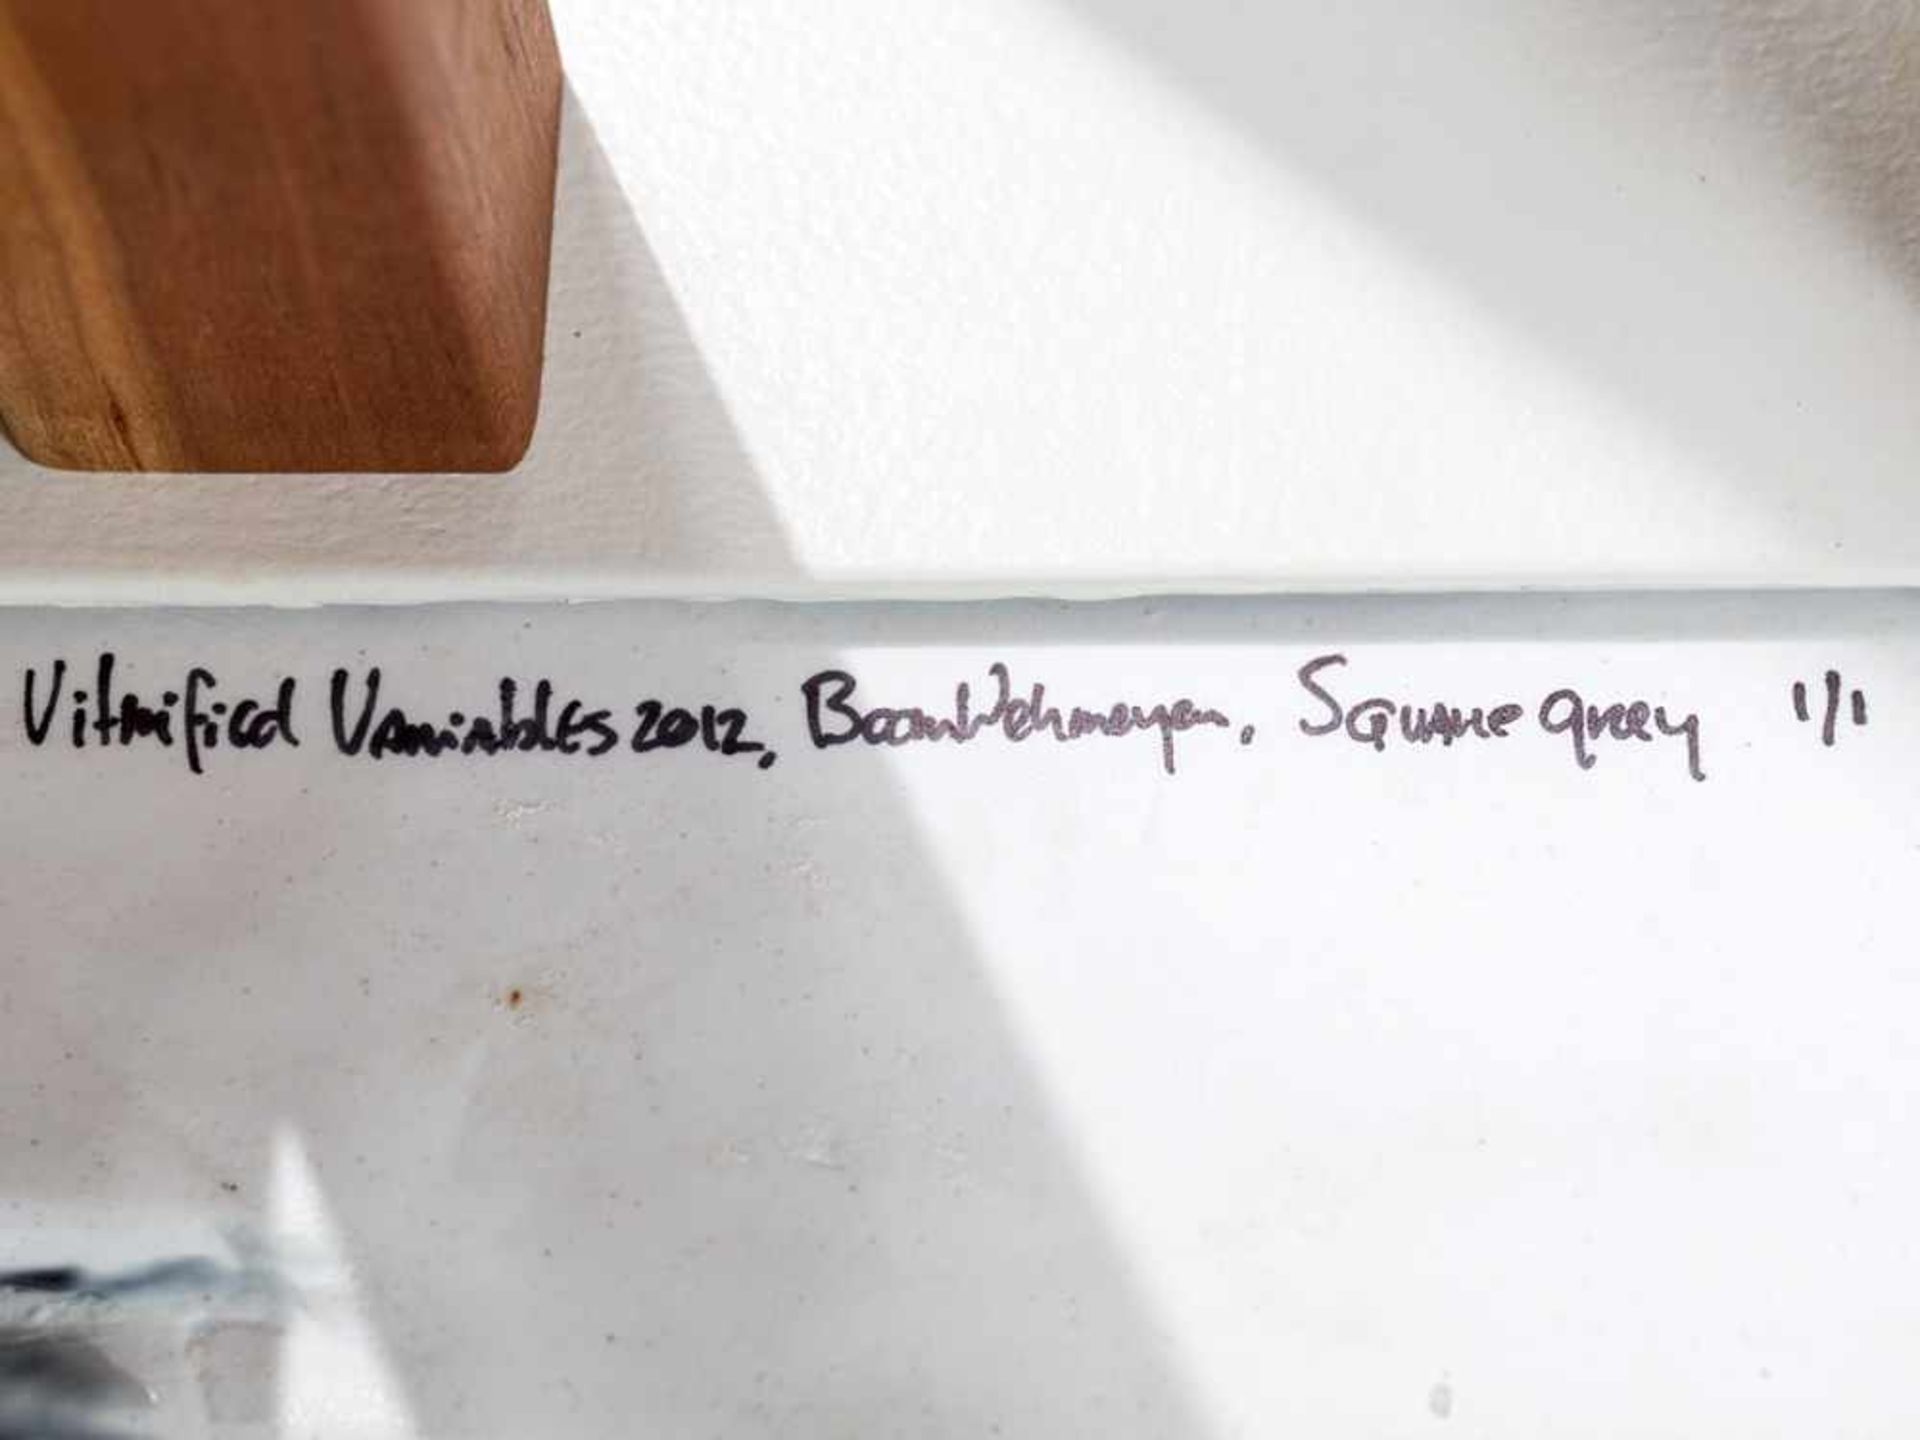 Vitrified Variables 2012, BoomWehmeyer, Square grey 1/1